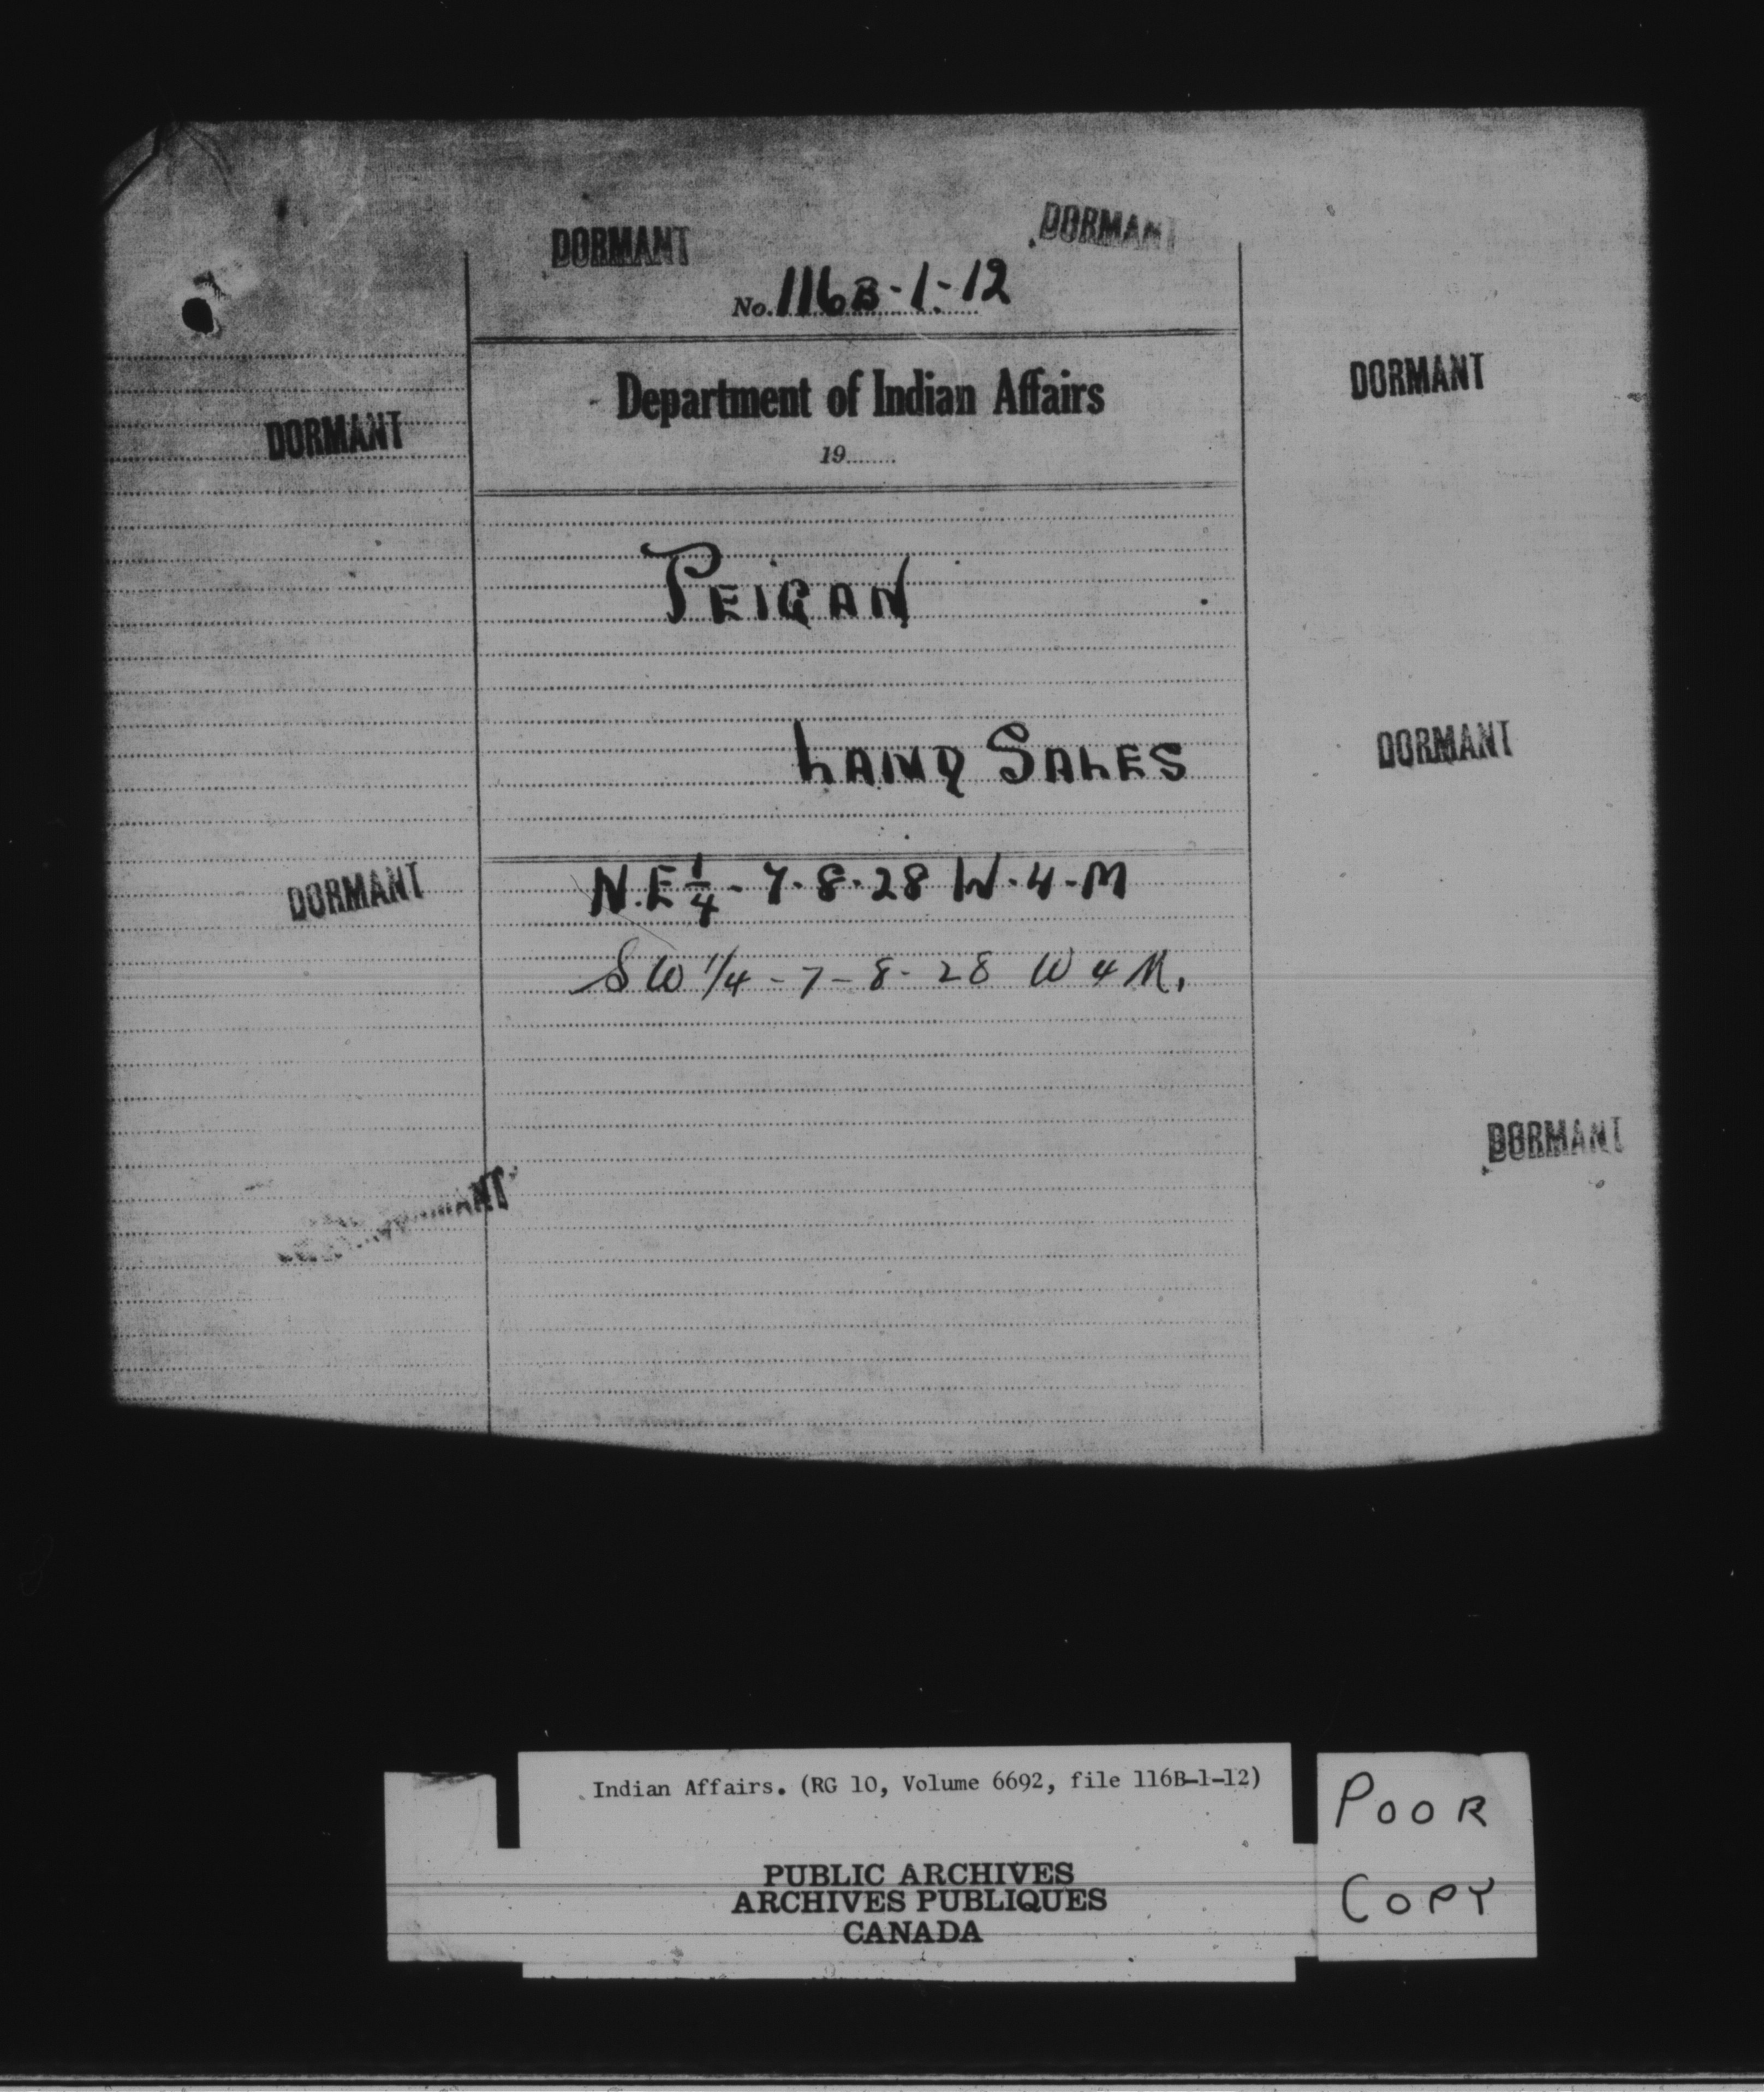 DORMANT
DORMANT
No. 116B-1-12
Department of Indian Affairs
19
DORMANT
DORMANT
PEIGAN
LAND SALES
DORMANT
N.E 1/4 - 7-8-28 W-4-M
DORMANT
SW 1/4 - 7-8-28 W 4 M.
DORMANT
DORMANT
Indian Affairs. (RG 10, Volume 6692, file 116B-1-12)
PUBLIC ARCHIVES
ARCHIVES PUBLIQUES
CANADA
POOR
COPY